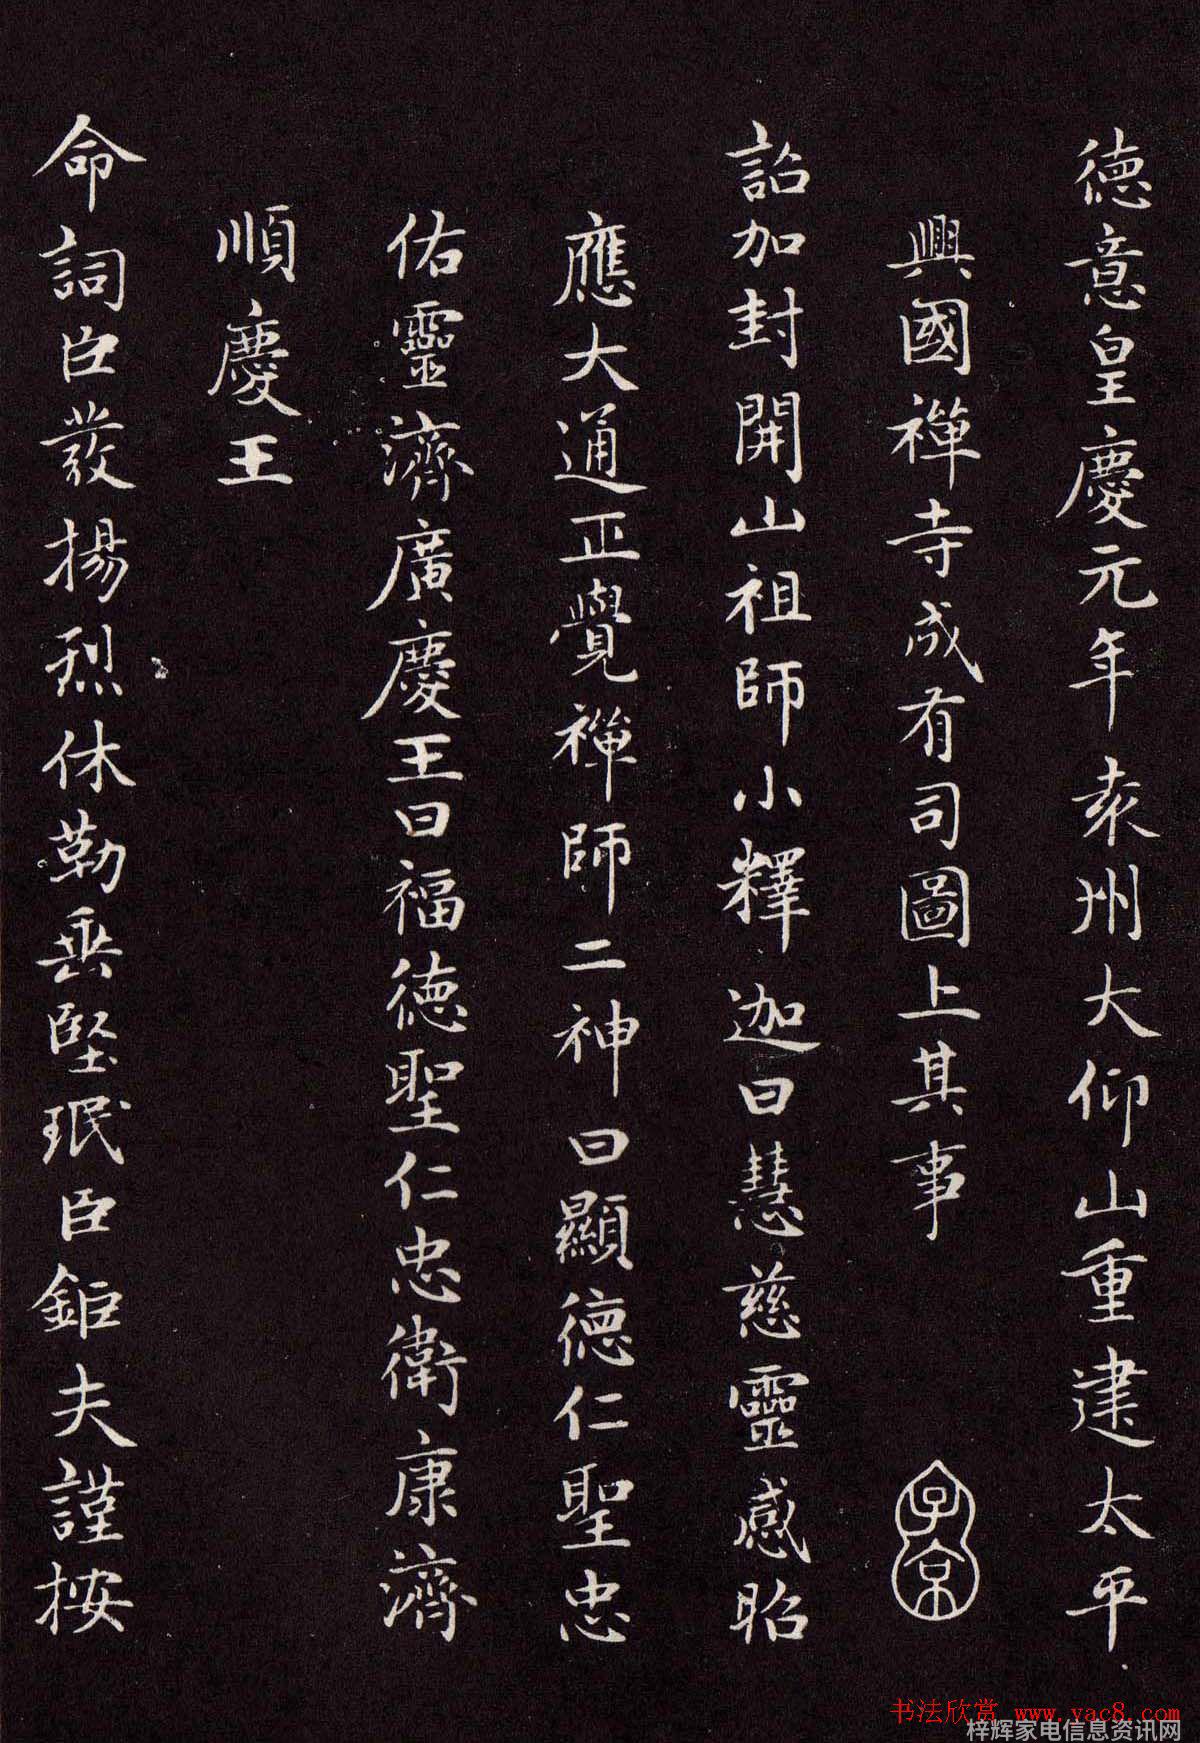 德意皇慶元年袁州大仰山重建太平
興國禅寺成有司圖上其事
子京
詔加封開山祖師小釋迦曰慧慈靈感昭
應大通正覺禅師二神曰顯德仁聖忠
佑靈濟廣慶王曰福德聖仁忠衛康濟
順慶王
命詞臣發揚烈休勒垂堅珉臣鉅夫謹按
书法欣赏 www.yac8.com
梓辉家电信息资讯网